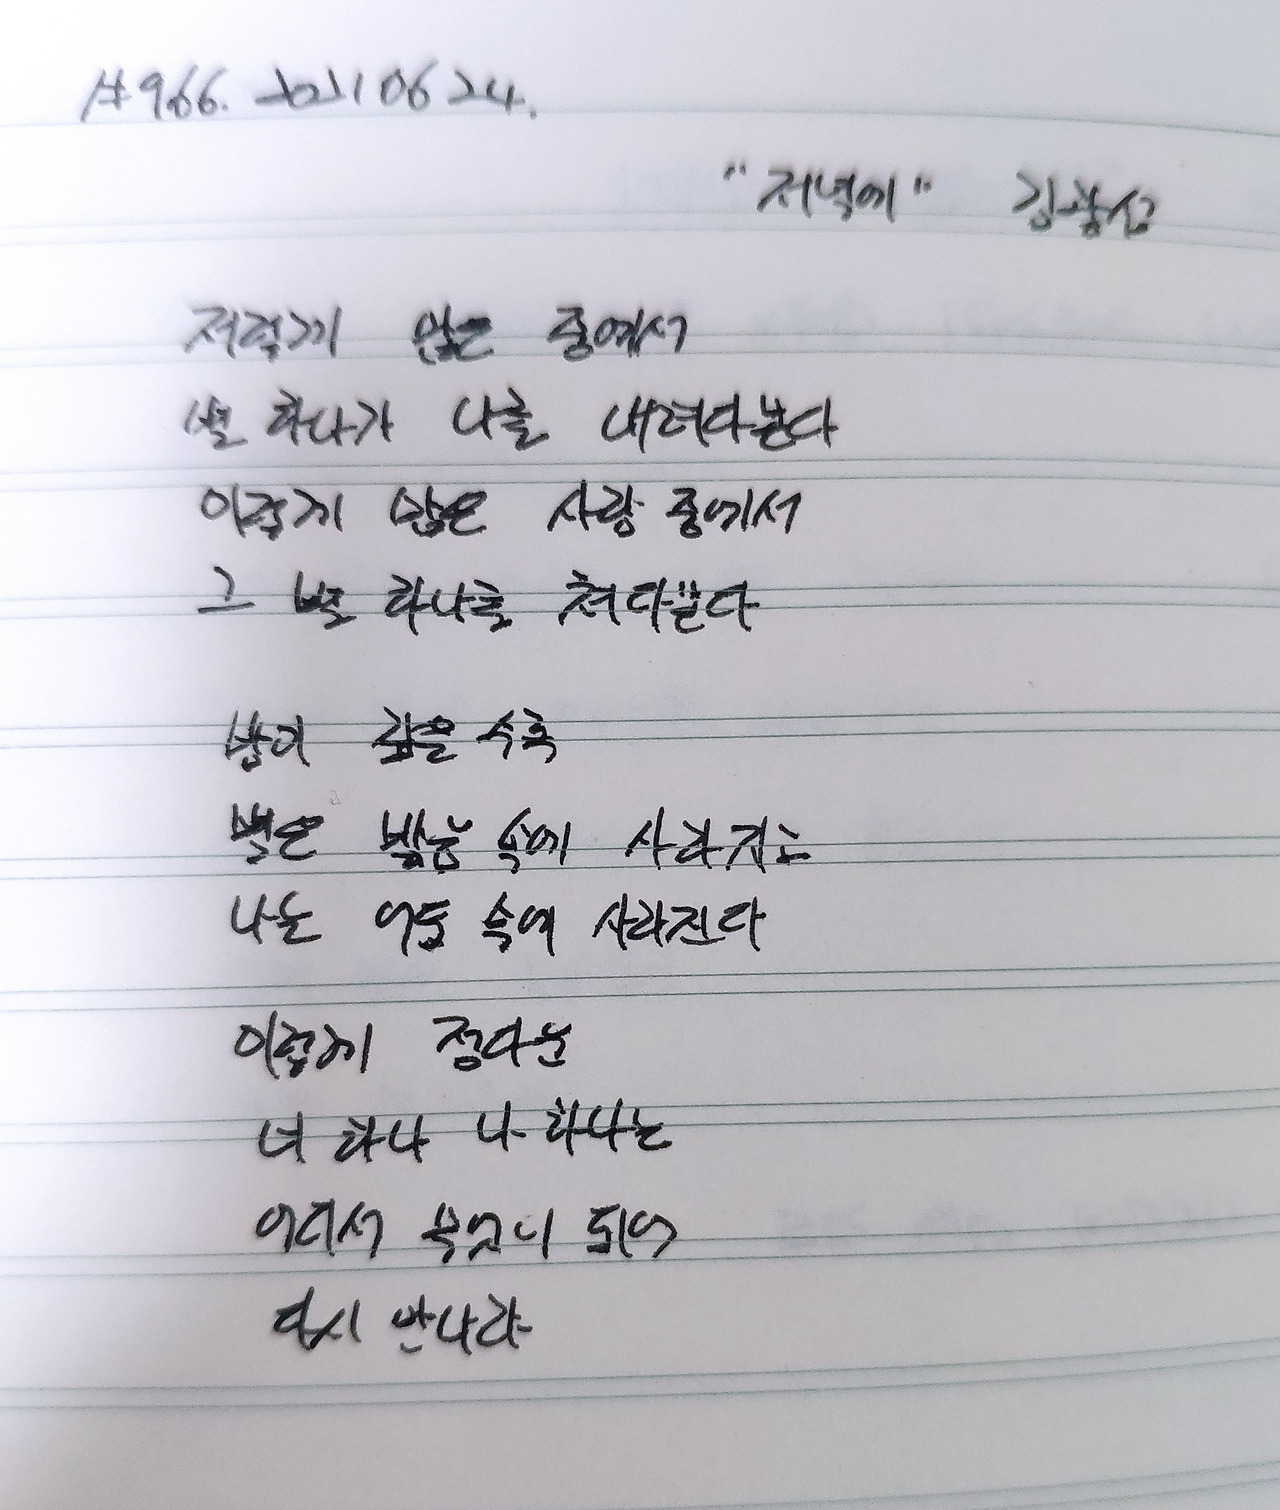 #966. 20210624.
"저녁에" 김광섭
저렇게 많은 중에서
별 하나가 나를 내려다본다
이렇게 많은 사람 중에서
그 별 하나를 쳐다본다
밤이 깊을 수록
별은 밝음 속에 사라지고
나는 어둠 속에 사라진다
이렇게 정다운
너 하나 나 하나는
어디서 무엇이 되어
다시 만나랴